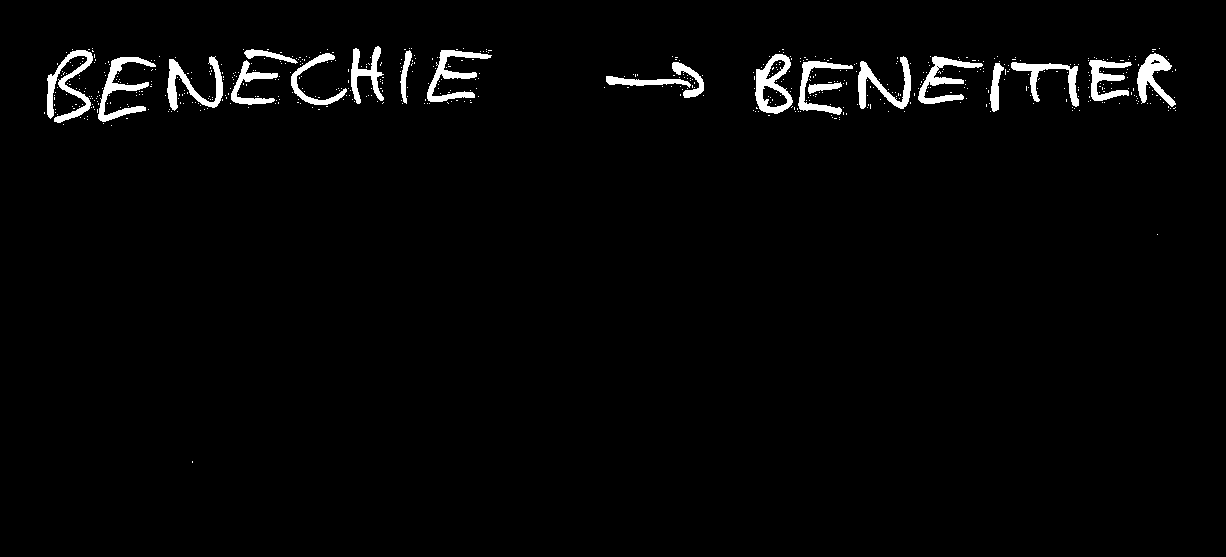 BENECHIE → BENEITIER